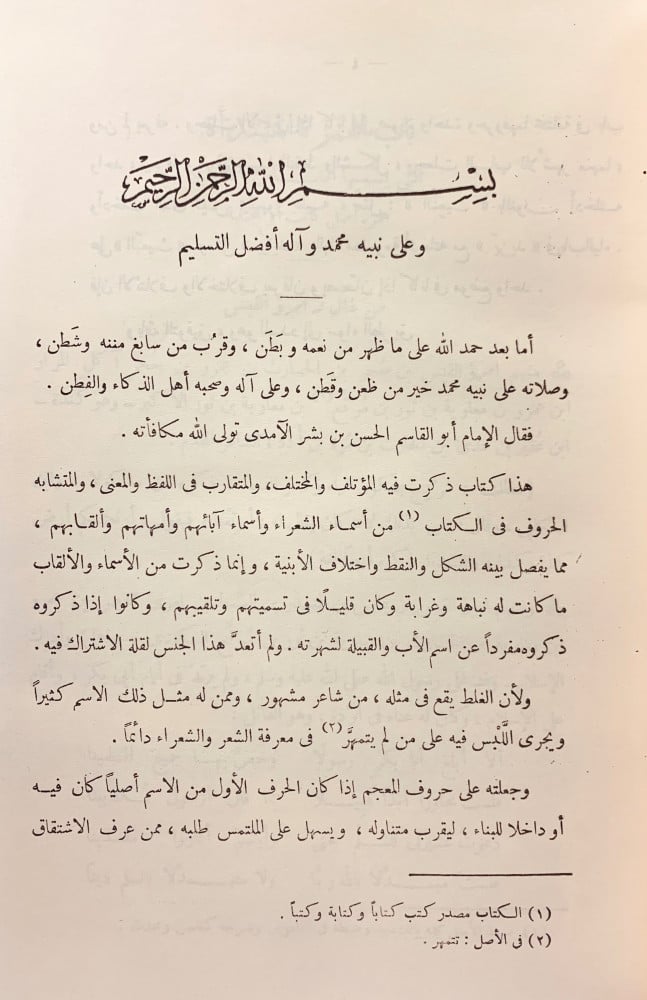 بسم الله الرحمن الرحيم
وعلى نبيه محمد وآله أفضل التسليم
أما بعد حمد الله على ما ظهر من نعمه وبَطَن ، وقرُب من سابغ مننه وشَطَن ،
وصلاته على نبيه محمد خير من ظعن وقَطَن ، وعلى آله وصحبه أهل الذكاء والفِطن .
فقال الإمام أبو القاسم الحسن بن بشر الآمدى تولى الله مكافأته .
هذا كتاب ذكرت فيه المؤتلف والمختلف، والمتقارب فى اللفظ والمعنى، والمتشابه
الحروف فى الكتاب (١) من أسماء الشعراء وأسماء آبائهم وأمهاتهم وألقابهم ،
مما يفصل بينه الشكل والنقط واختلاف الأبنية ، وإنما ذكرت من الأسماء والألقاب
ما كانت له نباهة وغرابة وكان قليلًا فى تسميتهم وتلقيبهم ، وكانوا إذا ذكروه
ذكروه مفرداً عن اسم الأب والقبيلة لشهرته . ولم أتعدَّ هذا الجنس لقلة الاشتراك فيه .
ولأن الغلط يقع فى مثله ، من شاعر مشهور ، وممن له مثل ذلك الاسم كثيراً
ويجرى اللَّبْس فيه على من لم يتمهَّر (٢) فى معرفة الشعر والشعراء دائماً .
وجعلته على حروف المعجم إذا كان الحرف الأول من الاسم أصلياً كان فيه
أو داخلا للبناء ، ليقرب متناوله ، ويسهل على الملتمس طلبه ، ممن عرف الاشتقاق
(١) الكتاب مصدر كتب كتاباً وكتابة وكتباً .
(٢) فى الأصل : تتمهر .